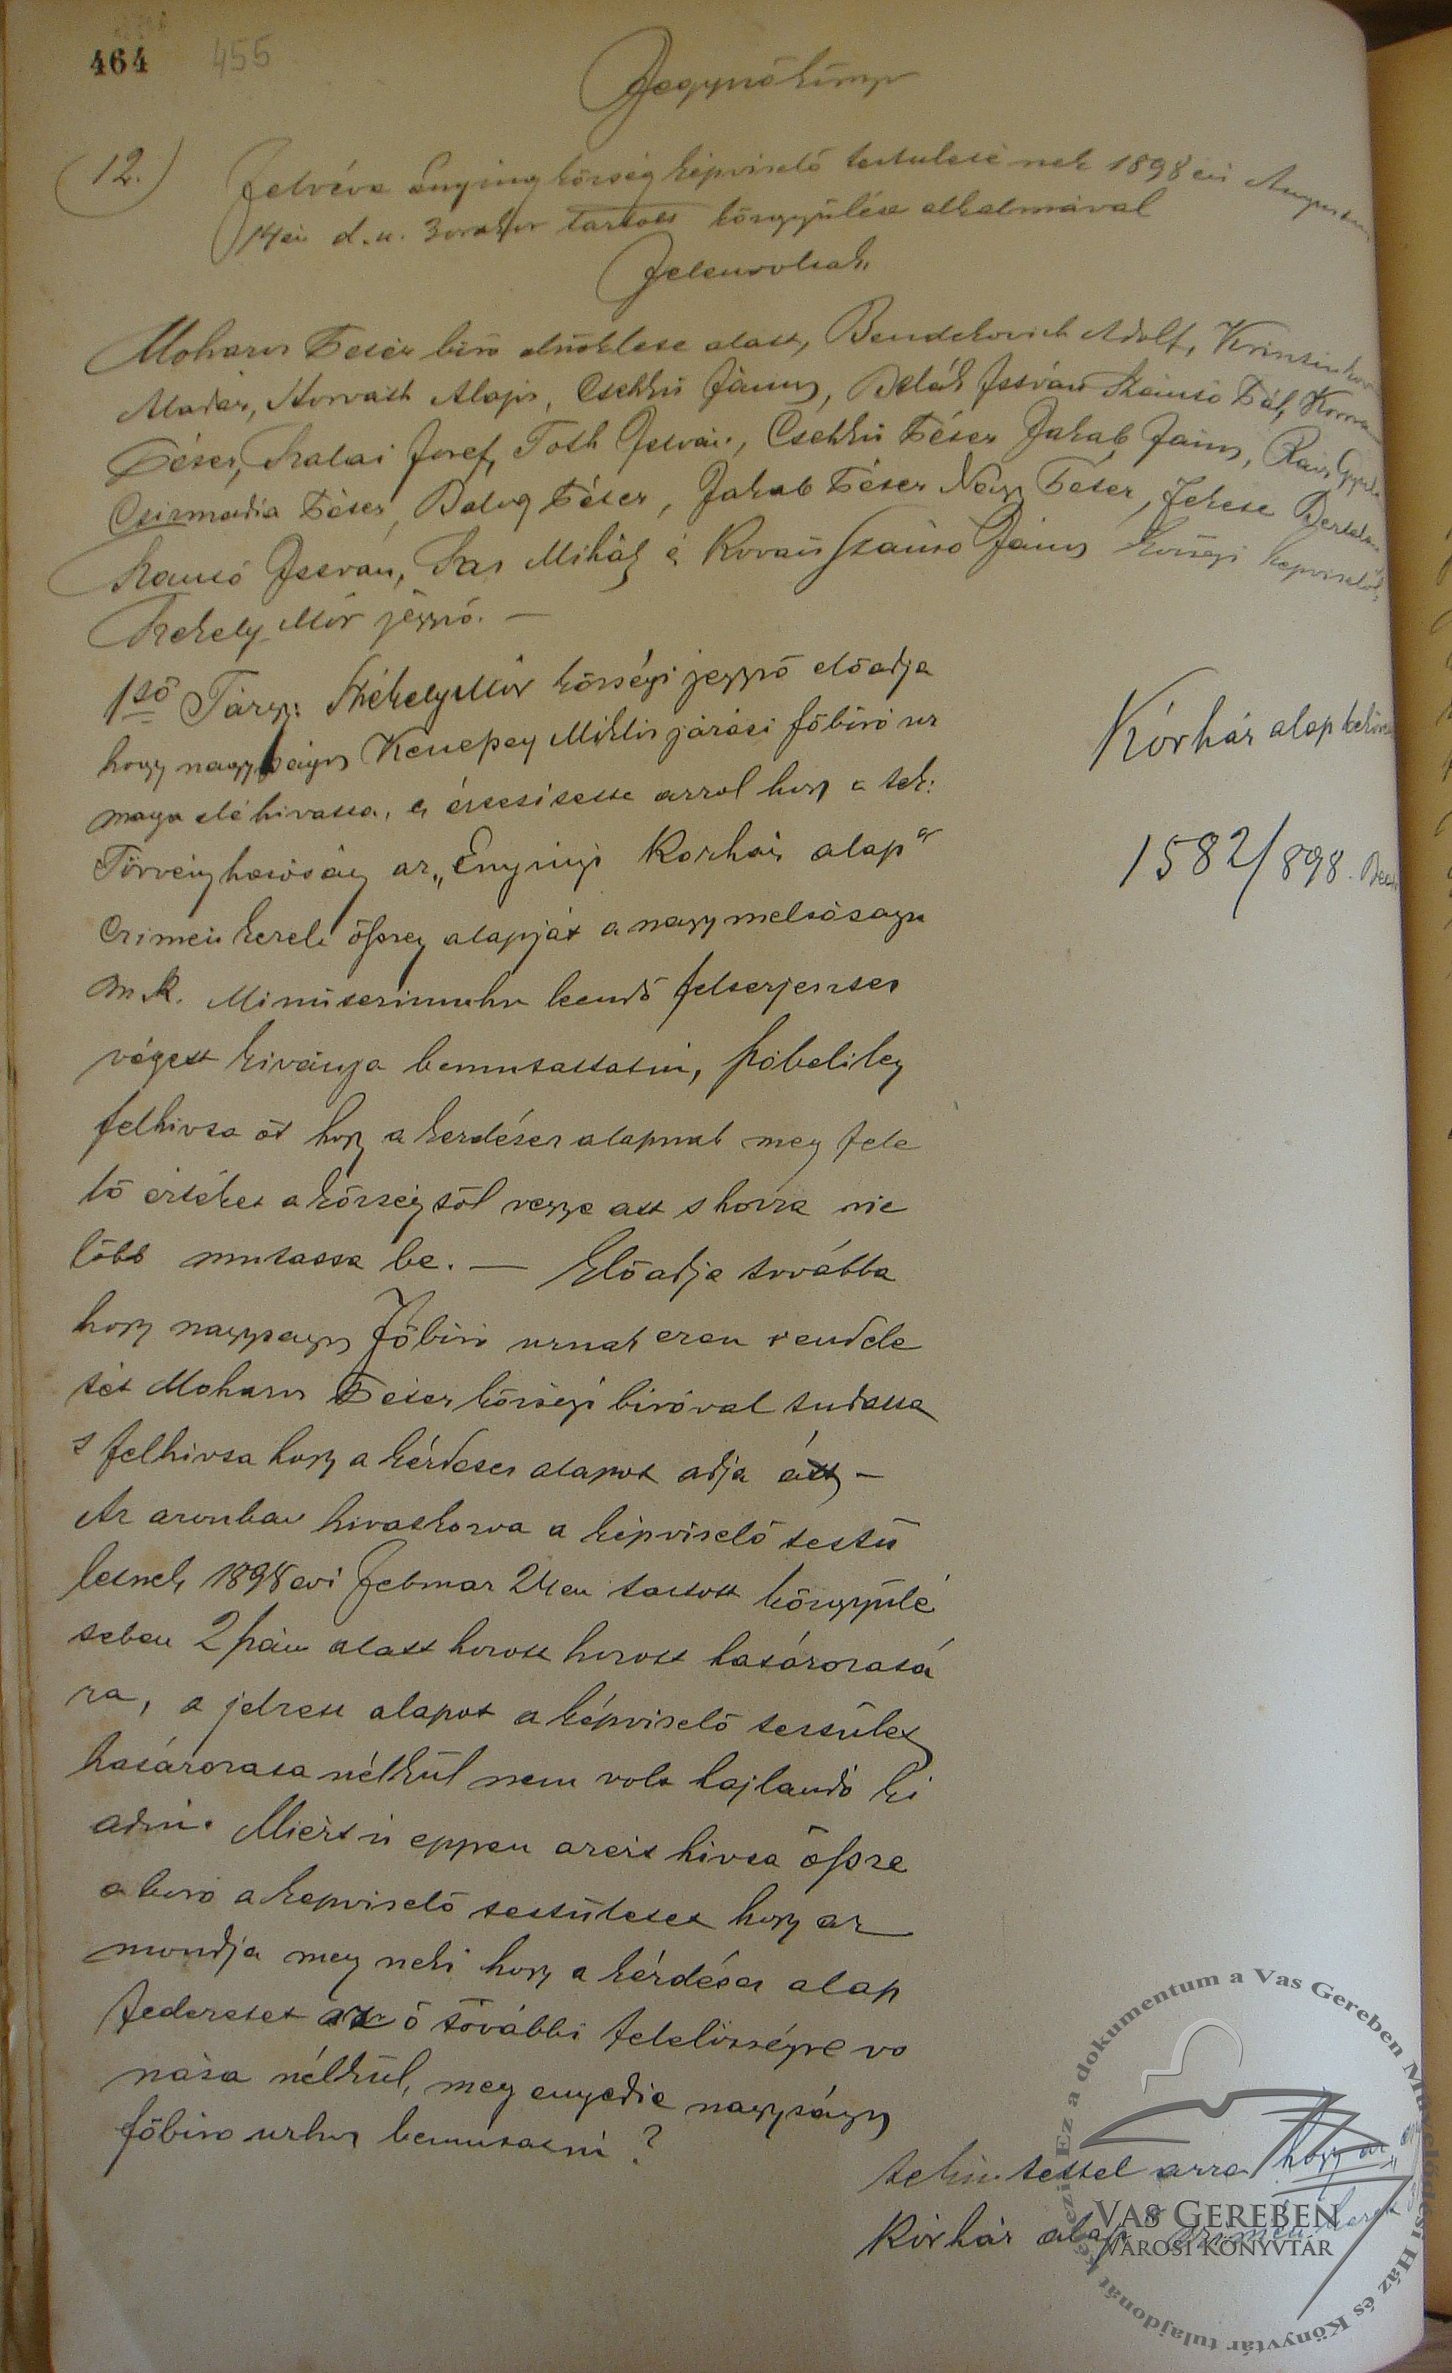 464 455
Jegyzőkönyv
12.) Felvéve Enying község képviselő testületének 1898 évi Augusztus
14én d.u. 3 orakor tartott közgyülése alkalmával
Jelenvoltak
Moharos Péter biró elnöklése alatt, Bendekovich Adolf,
Madar, Horváth Alajos, Csekkű János, Deák István Szánto Pál,
Péter, Szalai Josef, Toth István, Csekkű Péter Jakab János,
Csizmadia Péter, Balog Péter, Jakab Péter Nagy Péter, Fekete
Szántó István, Sas Mihály és Szántó János községi képviselők,
Székely Mór jegyző. —
1ső Tárgy: Székely Mór községi jegyző előadja
hogy nagyságos Kenessey Miklós járási főbiró ur
maga elé hivatta, és értesitette arrol hogy a tek:
Törvényhatóság az „Enyingi Korház alap"
czimén kezelt összeg alapját a nagyméltóságu
m k. Ministeriumhoz leendő felterjesztés
végett kivánja bemutattatni, szóbelileg
felhivta őt hogy a kerdéses alapnak meg fele
lő értéket a községtől vegye att s hozza mie
lőbb mutassa be. — Előadja továbba
hogy nagyságos Főbiró urnak ezen rendele
tét Moharos Péter községi biróval tudatta
s felhivta hogy a kérdéses alapot adja átt —
Az azonban hivatkozva a képviselő testü
letnek 1898 evi Februar 24en tartott közgyülé
sében 2 szám alatt hozott hozott határozatá
ra, a jelzett alapot a képviselő testület
határozata nélkül nem volt hajlandó ki
adni. Miért is eppen azért hivta össze
a biro a kepviselő testületet hogy az
mondja meg neki hogy a kérdéses alap
fedezetet az ő további felelősségre vo
nása nélkül, meg engedi e nagyságos
főbiro urhoz bemutatni?
tekintettel arra hogy az
Kórház alap czimén
Kórház alap
1582/898.
Ez a dokumentum a Vas Gereben Művelődési Ház és Könyvtár tulajdonát képezi
VAS GEREBEN
VÁROSI KÖNYVTÁR